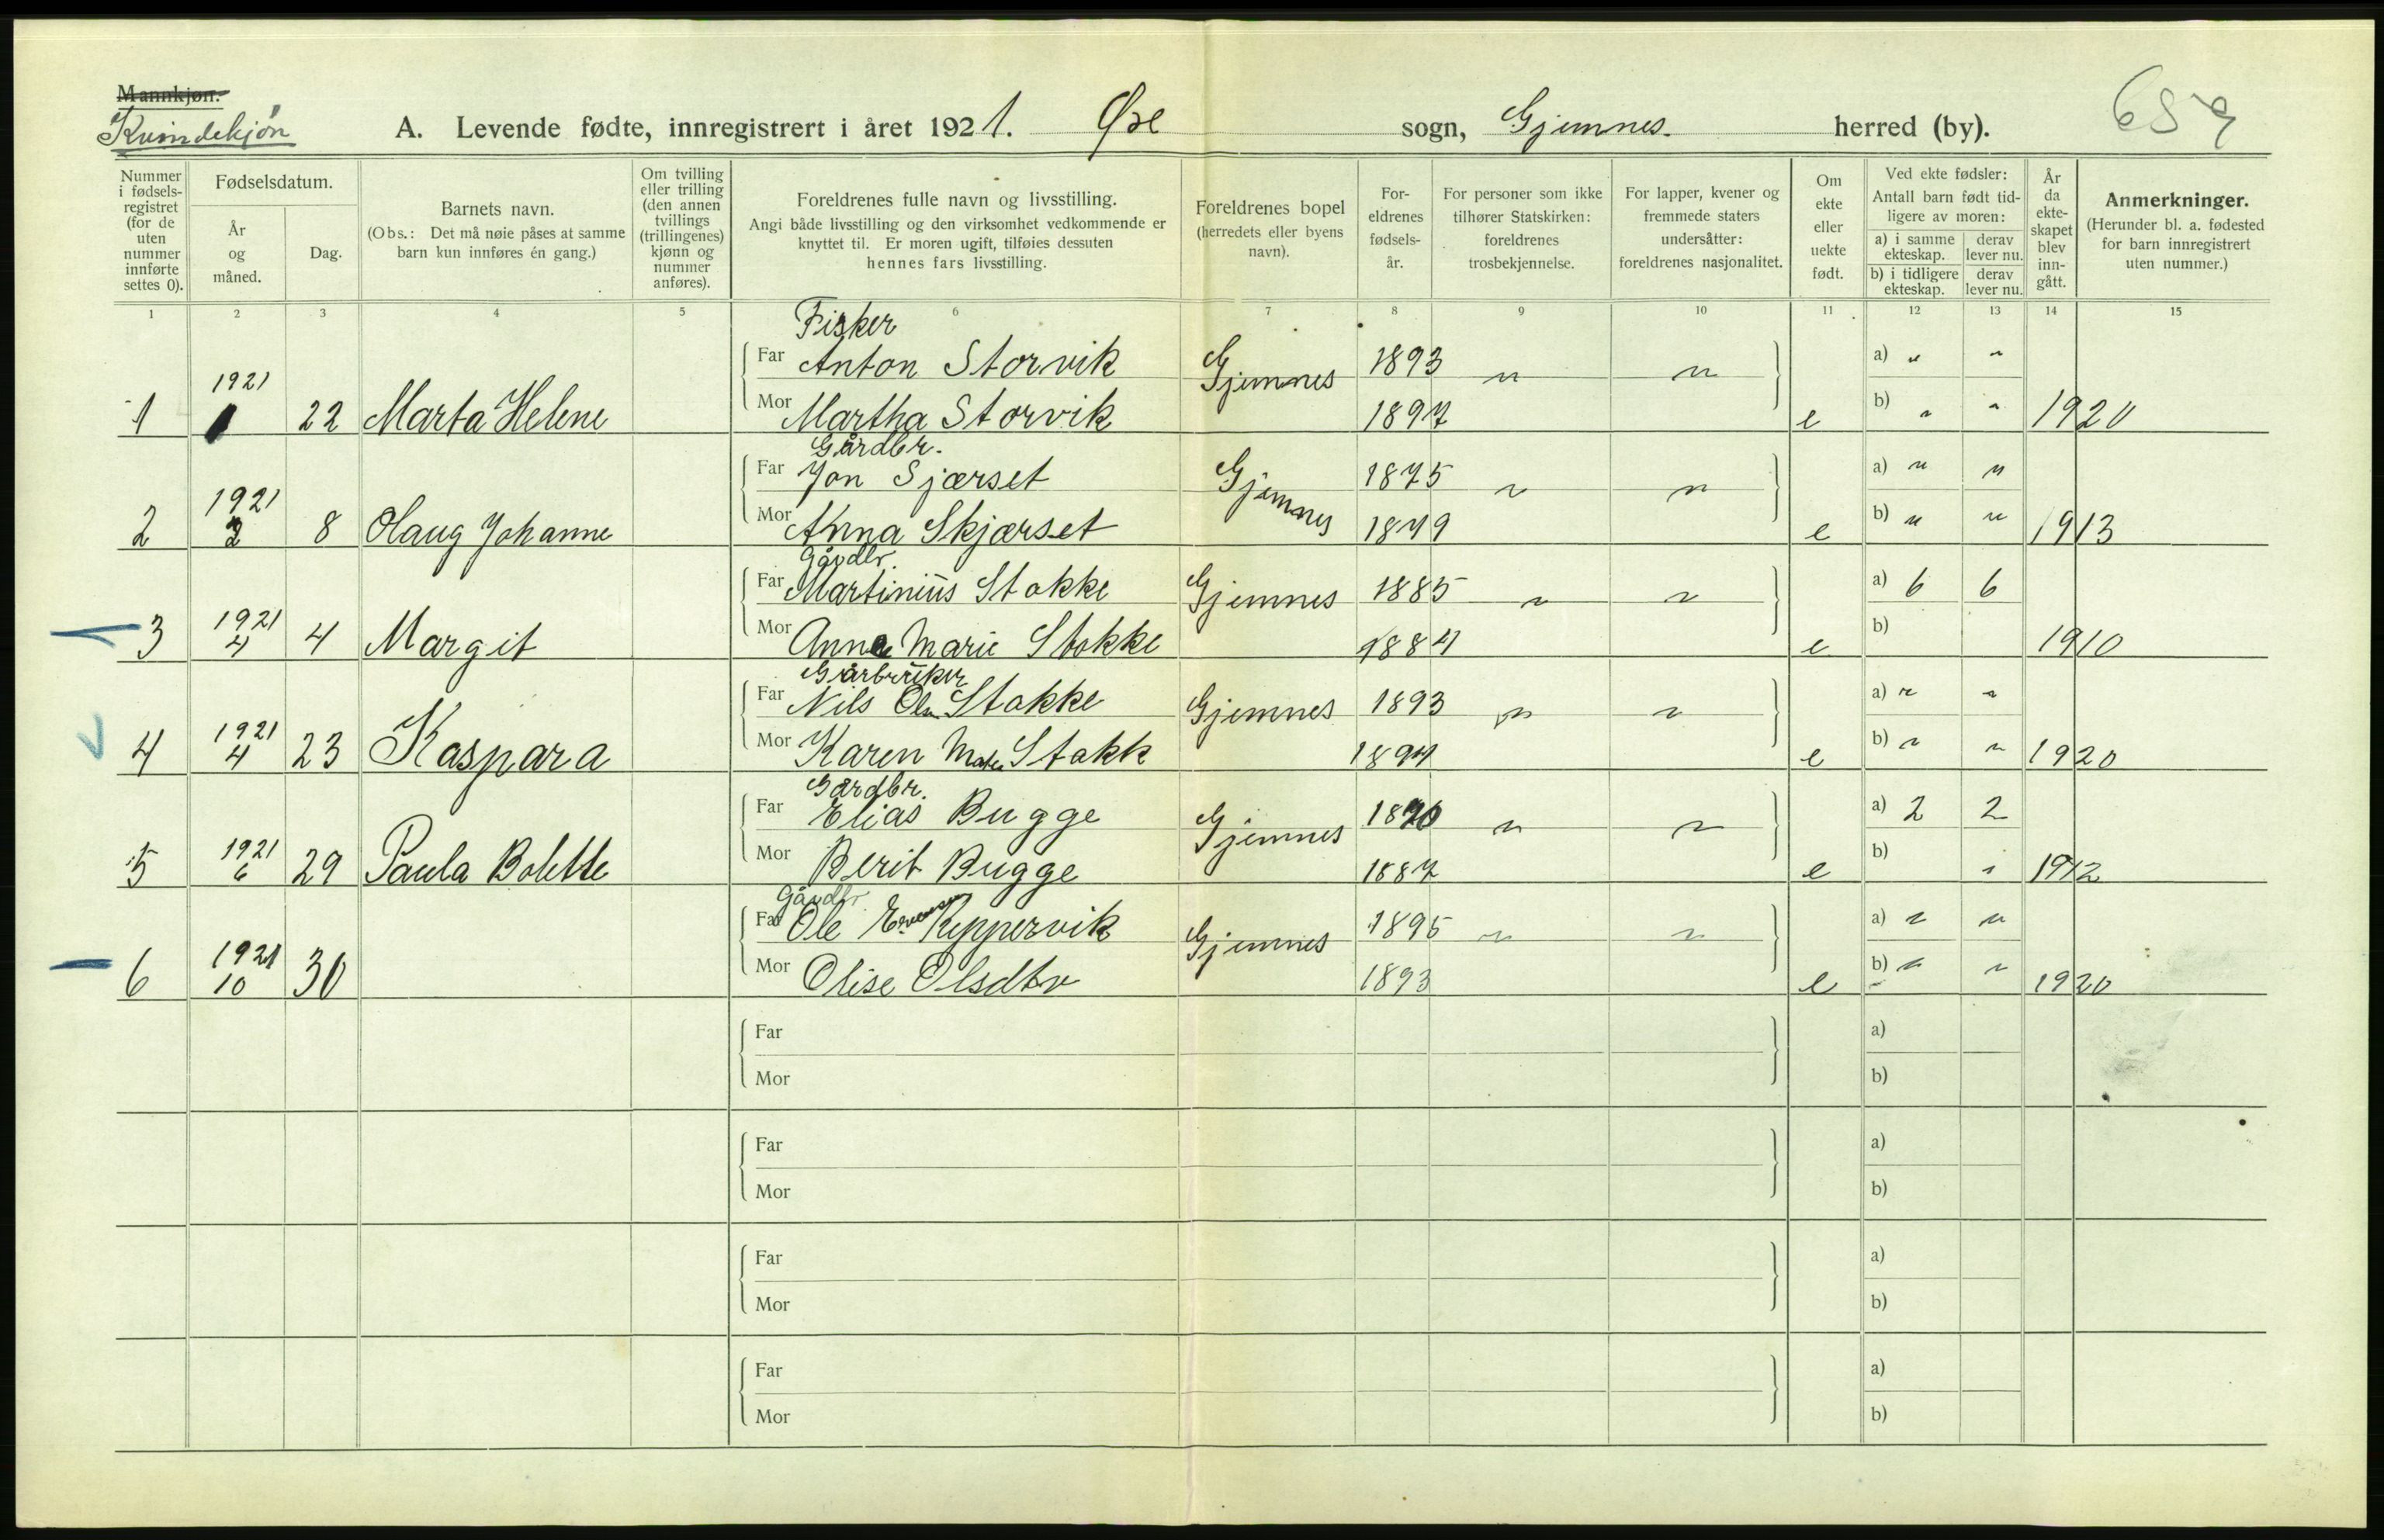 Mannkjøn.
Kvindekjøn
A. Levende fødte, innregistrert i året 1921. Øre sogn, Gjemnes. herred (by).
Nummer i fødselsregistret (for de uten nummer innførte settes 0).
Fødselsdatum.
År og måned.
Dag.
Barnets navn.
(Obs.: Det må nøie påses at samme barn kun innføres én gang.)
Om tvilling eller trilling (den annen tvillings (trillingenes) kjønn og nummer anføres).
Foreldrenes fulle navn og livsstilling.
Angi både livsstilling og den virksomhet vedkommende er knyttet til. Er moren ugift, tilføies dessuten hennes fars livsstilling.
Foreldrenes bopel (herredets eller byens navn).
Foreldrenes fødselsår.
For personer som ikke tilhører Statskirken: foreldrenes trosbekjennelse.
For lapper, kvener og fremmede staters undersåtter: foreldrenes nasjonalitet.
Om ekte eller uekte født.
Ved ekte fødsler:
Antall barn født tidligere av moren:
a) i samme ekteskap.
derav lever nu.
b) i tidligere ekteskap.
derav lever nu.
År da ekteskapet blev inngått.
Anmerkninger.
(Herunder bl. a. fødested for barn innregistrert uten nummer.)
1 2 3 4 5 6 7 8 9 10 11 12 13 14 15
Fisker
Far Anton Storvik Gjemnes 1893 " " a) " "
1 1921 1 22 Marta Helene Mor Martha Storvik 1897 e b) " " 1920
Gårdbr.
Far Jon Sjærset Gjemnes 1875 " " a) " "
2 1921 2 8 Olaug Johanne Mor Anna Skjærset 1879 e b) " " 1913
Gårdbr.
Far Martinius Stokke Gjemnes 1885 " " a) 6 6
3 1921 4 4 Margit Mor Anna Marie Stokke 1884 e b) 1910
Gårbruker
Far Nils Olsen Stokke Gjemnes 1893 " " a) " "
4 1921 4 23 Kaspara Mor Karen Stokk e b) " " 1920
Gårdbr.
Far Elias Bugge Gjemnes " " a) 2 2
5 1921 6 29 Paula Bolette Mor Berit Bugge 1887 e b) " 1912
Gårdbr
Far Ole Reppervik Gjemnes 1895 " " a) " "
6 1921 10 30 Mor Olise Olsdtr 1893 e b) " " 1920
Far a)
Mor b)
Far a)
Mor b)
Far a)
Mor b)
Far a)
Mor b)